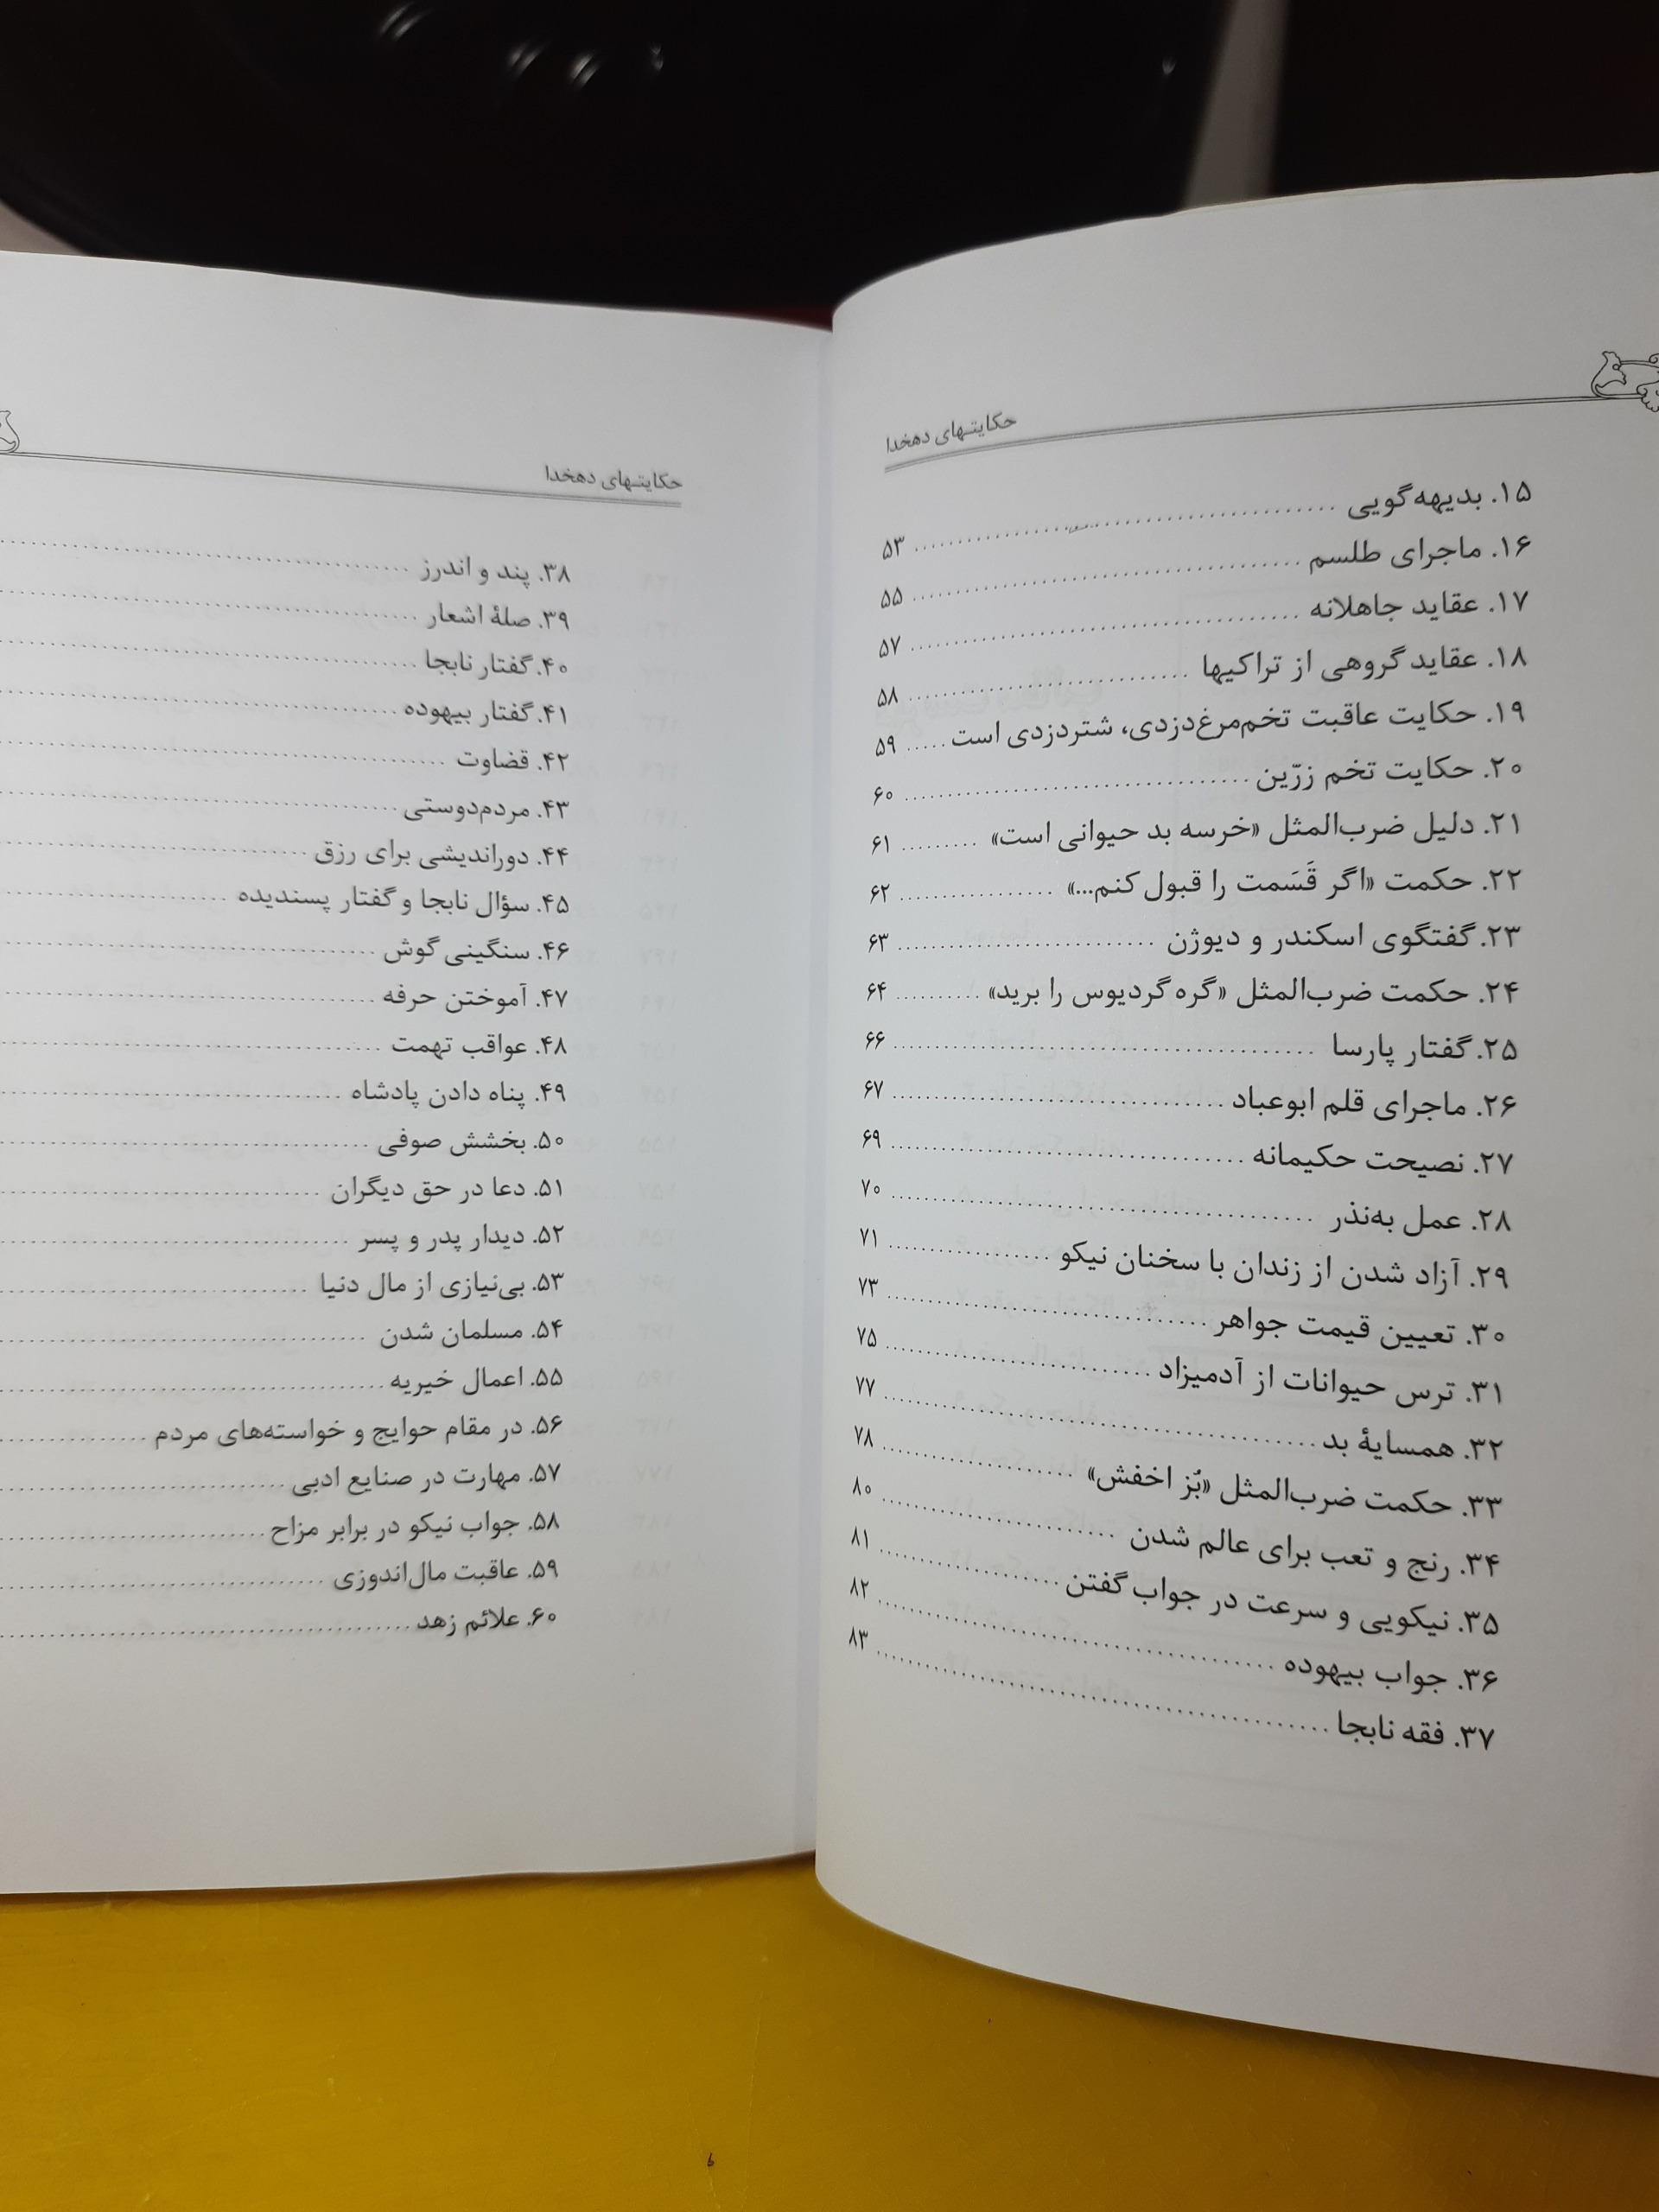 حکایتهای دهخدا
۱۵. بدیهه‌گویی ........ ۵۳
۱۶. ماجرای طلسم ........ ۵۵
۱۷. عقاید جاهلانه ........ ۵۷
۱۸. عقاید گروهی از تراکیها ........ ۵۸
۱۹. حکایت عاقبت تخم‌مرغ‌دزدی، شتردزدی است ..... ۵۹
۲۰. حکایت تخم زرّین ........ ۶۰
۲۱. دلیل ضرب‌المثل «خرسه بد حیوانی است» ........ ۶۱
۲۲. حکمت «اگر قَسَمت را قبول کنم...» ........ ۶۲
۲۳. گفتگوی اسکندر و دیوژن ........ ۶۳
۲۴. حکمت ضرب‌المثل «گره گردیوس را برید» ........ ۶۴
۲۵. گفتار پارسا ........ ۶۶
۲۶. ماجرای قلم ابوعباد ........ ۶۷
۲۷. نصیحت حکیمانه ........ ۶۹
۲۸. عمل به‌نذر ........ ۷۰
۲۹. آزاد شدن از زندان با سخنان نیکو ........ ۷۱
۳۰. تعیین قیمت جواهر ........ ۷۳
۳۱. ترس حیوانات از آدمیزاد ........ ۷۵
۳۲. همسایهٔ بد ........ ۷۷
۳۳. حکمت ضرب‌المثل «بُز اخفش» ........ ۷۸
۳۴. رنج و تعب برای عالم شدن ........ ۸۰
۳۵. نیکویی و سرعت در جواب گفتن ........ ۸۱
۳۶. جواب بیهوده ........ ۸۲
۳۷. فقه نابجا ........ ۸۳
حکایتهای دهخدا
۳۸. پند و اندرز ........
۳۹. صلهٔ اشعار ........
۴۰. گفتار نابجا ........
۴۱. گفتار بیهوده ........
۴۲. قضاوت ........
۴۳. مردم‌دوستی ........
۴۴. دوراندیشی برای رزق ........
۴۵. سؤال نابجا و گفتار پسندیده ........
۴۶. سنگینی گوش ........
۴۷. آموختن حرفه ........
۴۸. عواقب تهمت ........
۴۹. پناه دادن پادشاه ........
۵۰. بخشش صوفی ........
۵۱. دعا در حق دیگران ........
۵۲. دیدار پدر و پسر ........
۵۳. بی‌نیازی از مال دنیا ........
۵۴. مسلمان شدن ........
۵۵. اعمال خیریه ........
۵۶. در مقام حوایج و خواسته‌های مردم ........
۵۷. مهارت در صنایع ادبی ........
۵۸. جواب نیکو در برابر مزاح ........
۵۹. عاقبت مال‌اندوزی ........
۶۰. علائم زهد ........